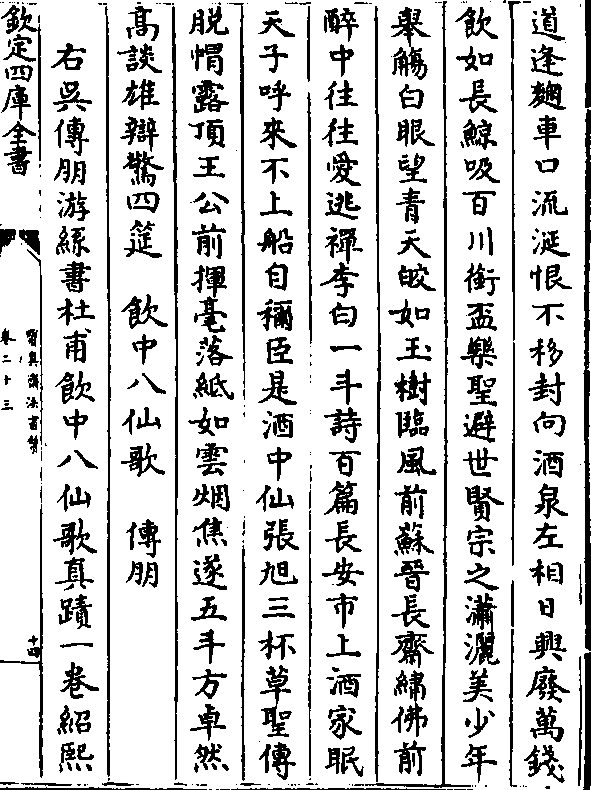 道逢麹車口流涎恨不移封向酒泉左相日興廢萬錢
飲如長鯨吸百川銜盃樂聖避世賢宗之瀟灑美少年
舉觴白眼望青天皎如玉樹臨風前蘇晉長齋繡佛前
醉中往往愛逃禪李白一斗詩百篇長安市上酒家眠
天子呼來不上船自稱臣是酒中仙張旭三杯草聖傳
脱帽露頂王公前揮毫落紙如雲烟焦遂五斗方卓然
高談雄辯驚四筵　飲中八仙歌　傅朋
右吳傅朋游絲書杜甫飲中八仙歌真蹟一卷紹熙
欽定四庫全書
寶真齋法書贊
卷二十三
十四